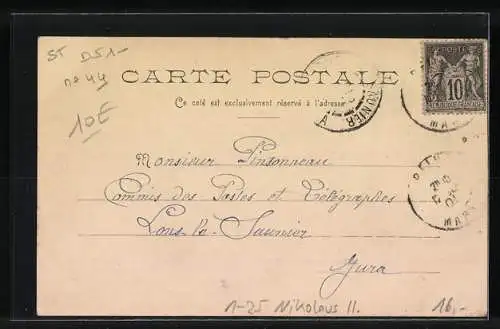 ST D51-
n° 44
10E
CARTE POSTALE
Ce coté est exclusivement réservé à l'adresse
POSTE
10
MAR
MAR
Monsieur Pinsonneau
Commis des Postes et Télégraphes
Lons-le-Saunier
Jura
1-25 Nikolaus II. 16,-